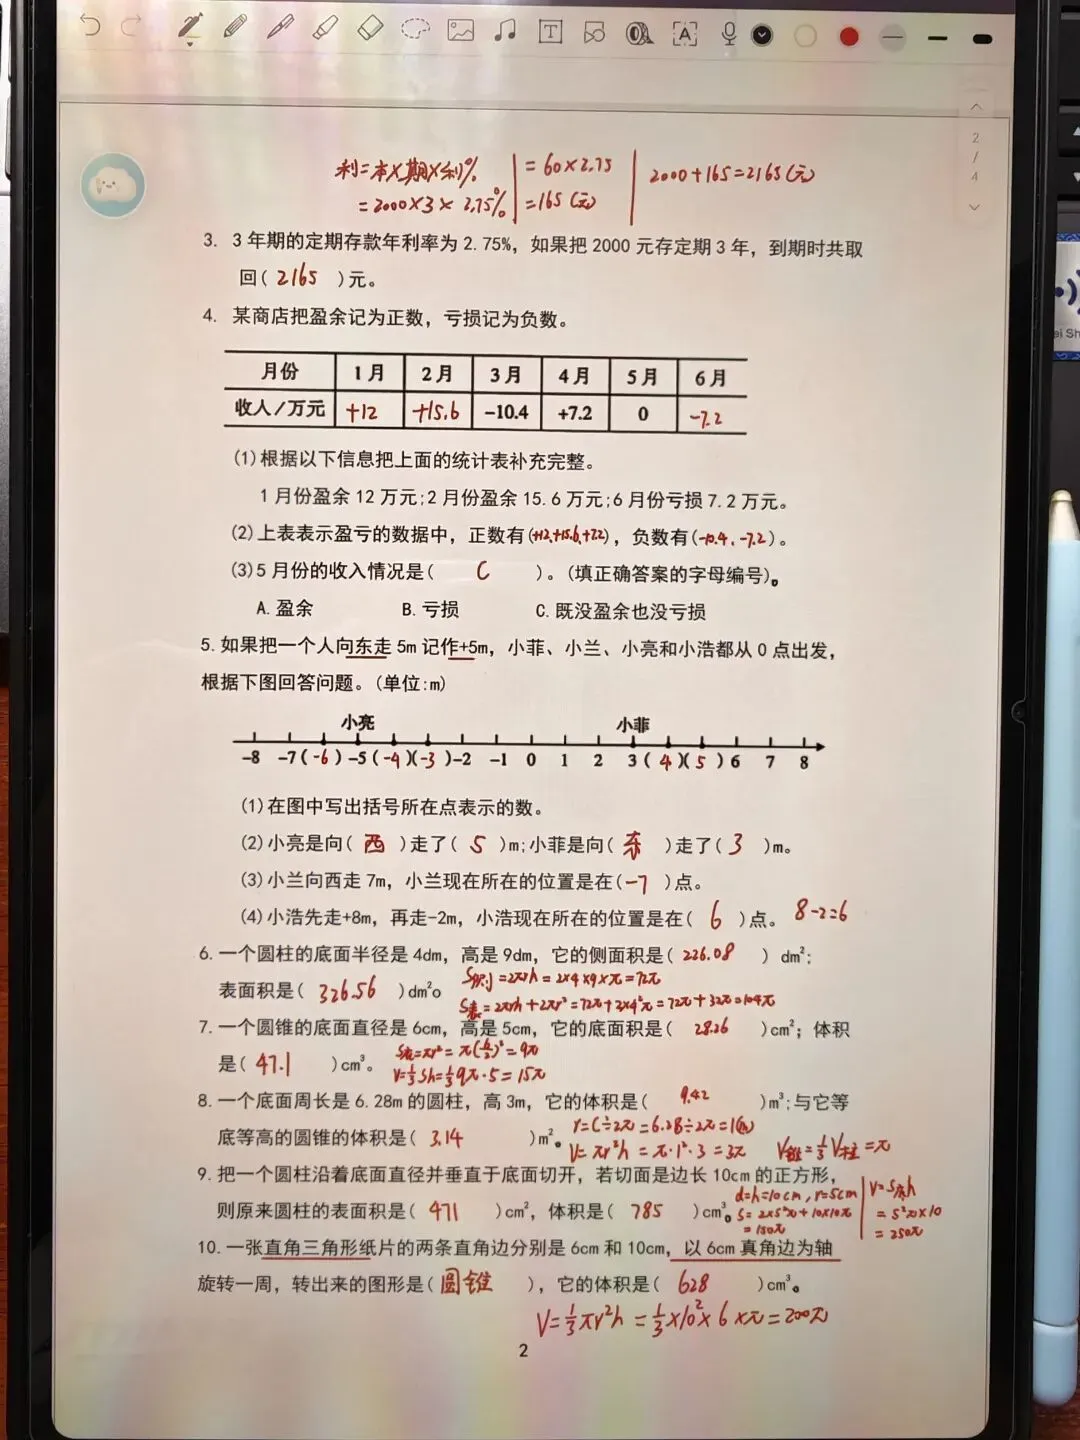 2
/
4
利=本×期×利%
=2000×3×2.75%
=60×2.75
=165(元)
2000+165=2165(元)
3. 3年期的定期存款年利率为2.75%，如果把2000元存定期3年，到期时共取
回( 2165 )元。
4. 某商店把盈余记为正数，亏损记为负数。
月份 1月 2月 3月 4月 5月 6月
收入/万元 +12 +15.6 -10.4 +7.2 0 -7.2
(1)根据以下信息把上面的统计表补充完整。
1月份盈余12万元;2月份盈余15.6万元;6月份亏损7.2万元。
(2)上表表示盈亏的数据中，正数有(+12、+15.6、+7.2)，负数有(-10.4、-7.2)。
(3)5月份的收入情况是( C )。(填正确答案的字母编号)。
A.盈余 B.亏损 C.既没盈余也没亏损
5.如果把一个人向东走5m记作+5m，小菲、小兰、小亮和小浩都从0点出发，
根据下图回答问题。(单位:m)
小亮 小菲
-8 -7 (-6) -5 (-4)(-3) -2 -1 0 1 2 3 (4)(5) 6 7 8
(1)在图中写出括号所在点表示的数。
(2)小亮是向( 西 )走了( 5 )m;小菲是向( 东 )走了( 3 )m。
(3)小兰向西走7m，小兰现在所在的位置是在(-7 )点。
(4)小浩先走+8m，再走-2m，小浩现在所在的位置是在( 6 )点。 8-2=6
6.一个圆柱的底面半径是4dm，高是9dm，它的侧面积是( 226.08 ) dm²;
表面积是( 326.56 )dm²。 S侧=2πrh=2×4×9×π=72π
S表=2πrh+2πr²=72π+2×4²π=72π+32π=104π
7.一个圆锥的底面直径是6cm，高是5cm，它的底面积是( 28.26 )cm²; 体积
是( 47.1 )cm³。 S底=πr²=π(6/2)²=9π
V=1/3Sh=1/3 9π·5=15π
8.一个底面周长是6.28m的圆柱，高3m，它的体积是( 9.42 )m³;与它等
底等高的圆锥的体积是( 3.14 )m²。 r=C÷2π=6.28÷2π=1(m)
V=πr²h=π·1²·3=3π V锥=1/3V柱=π
9.把一个圆柱沿着底面直径并垂直于底面切开，若切面是边长10cm的正方形，
则原来圆柱的表面积是( 471 )cm²，体积是( 785 )cm³。
d=h=10cm,r=5cm
S=2×5²π+10×10π
=150π
V=S底h
=5²π×10
=250π
10.一张直角三角形纸片的两条直角边分别是6cm和10cm，以6cm真角边为轴
旋转一周，转出来的图形是( 圆锥 )，它的体积是( 628 )cm³。
V=1/3πr²h=1/3×10²×6×π=200π
2